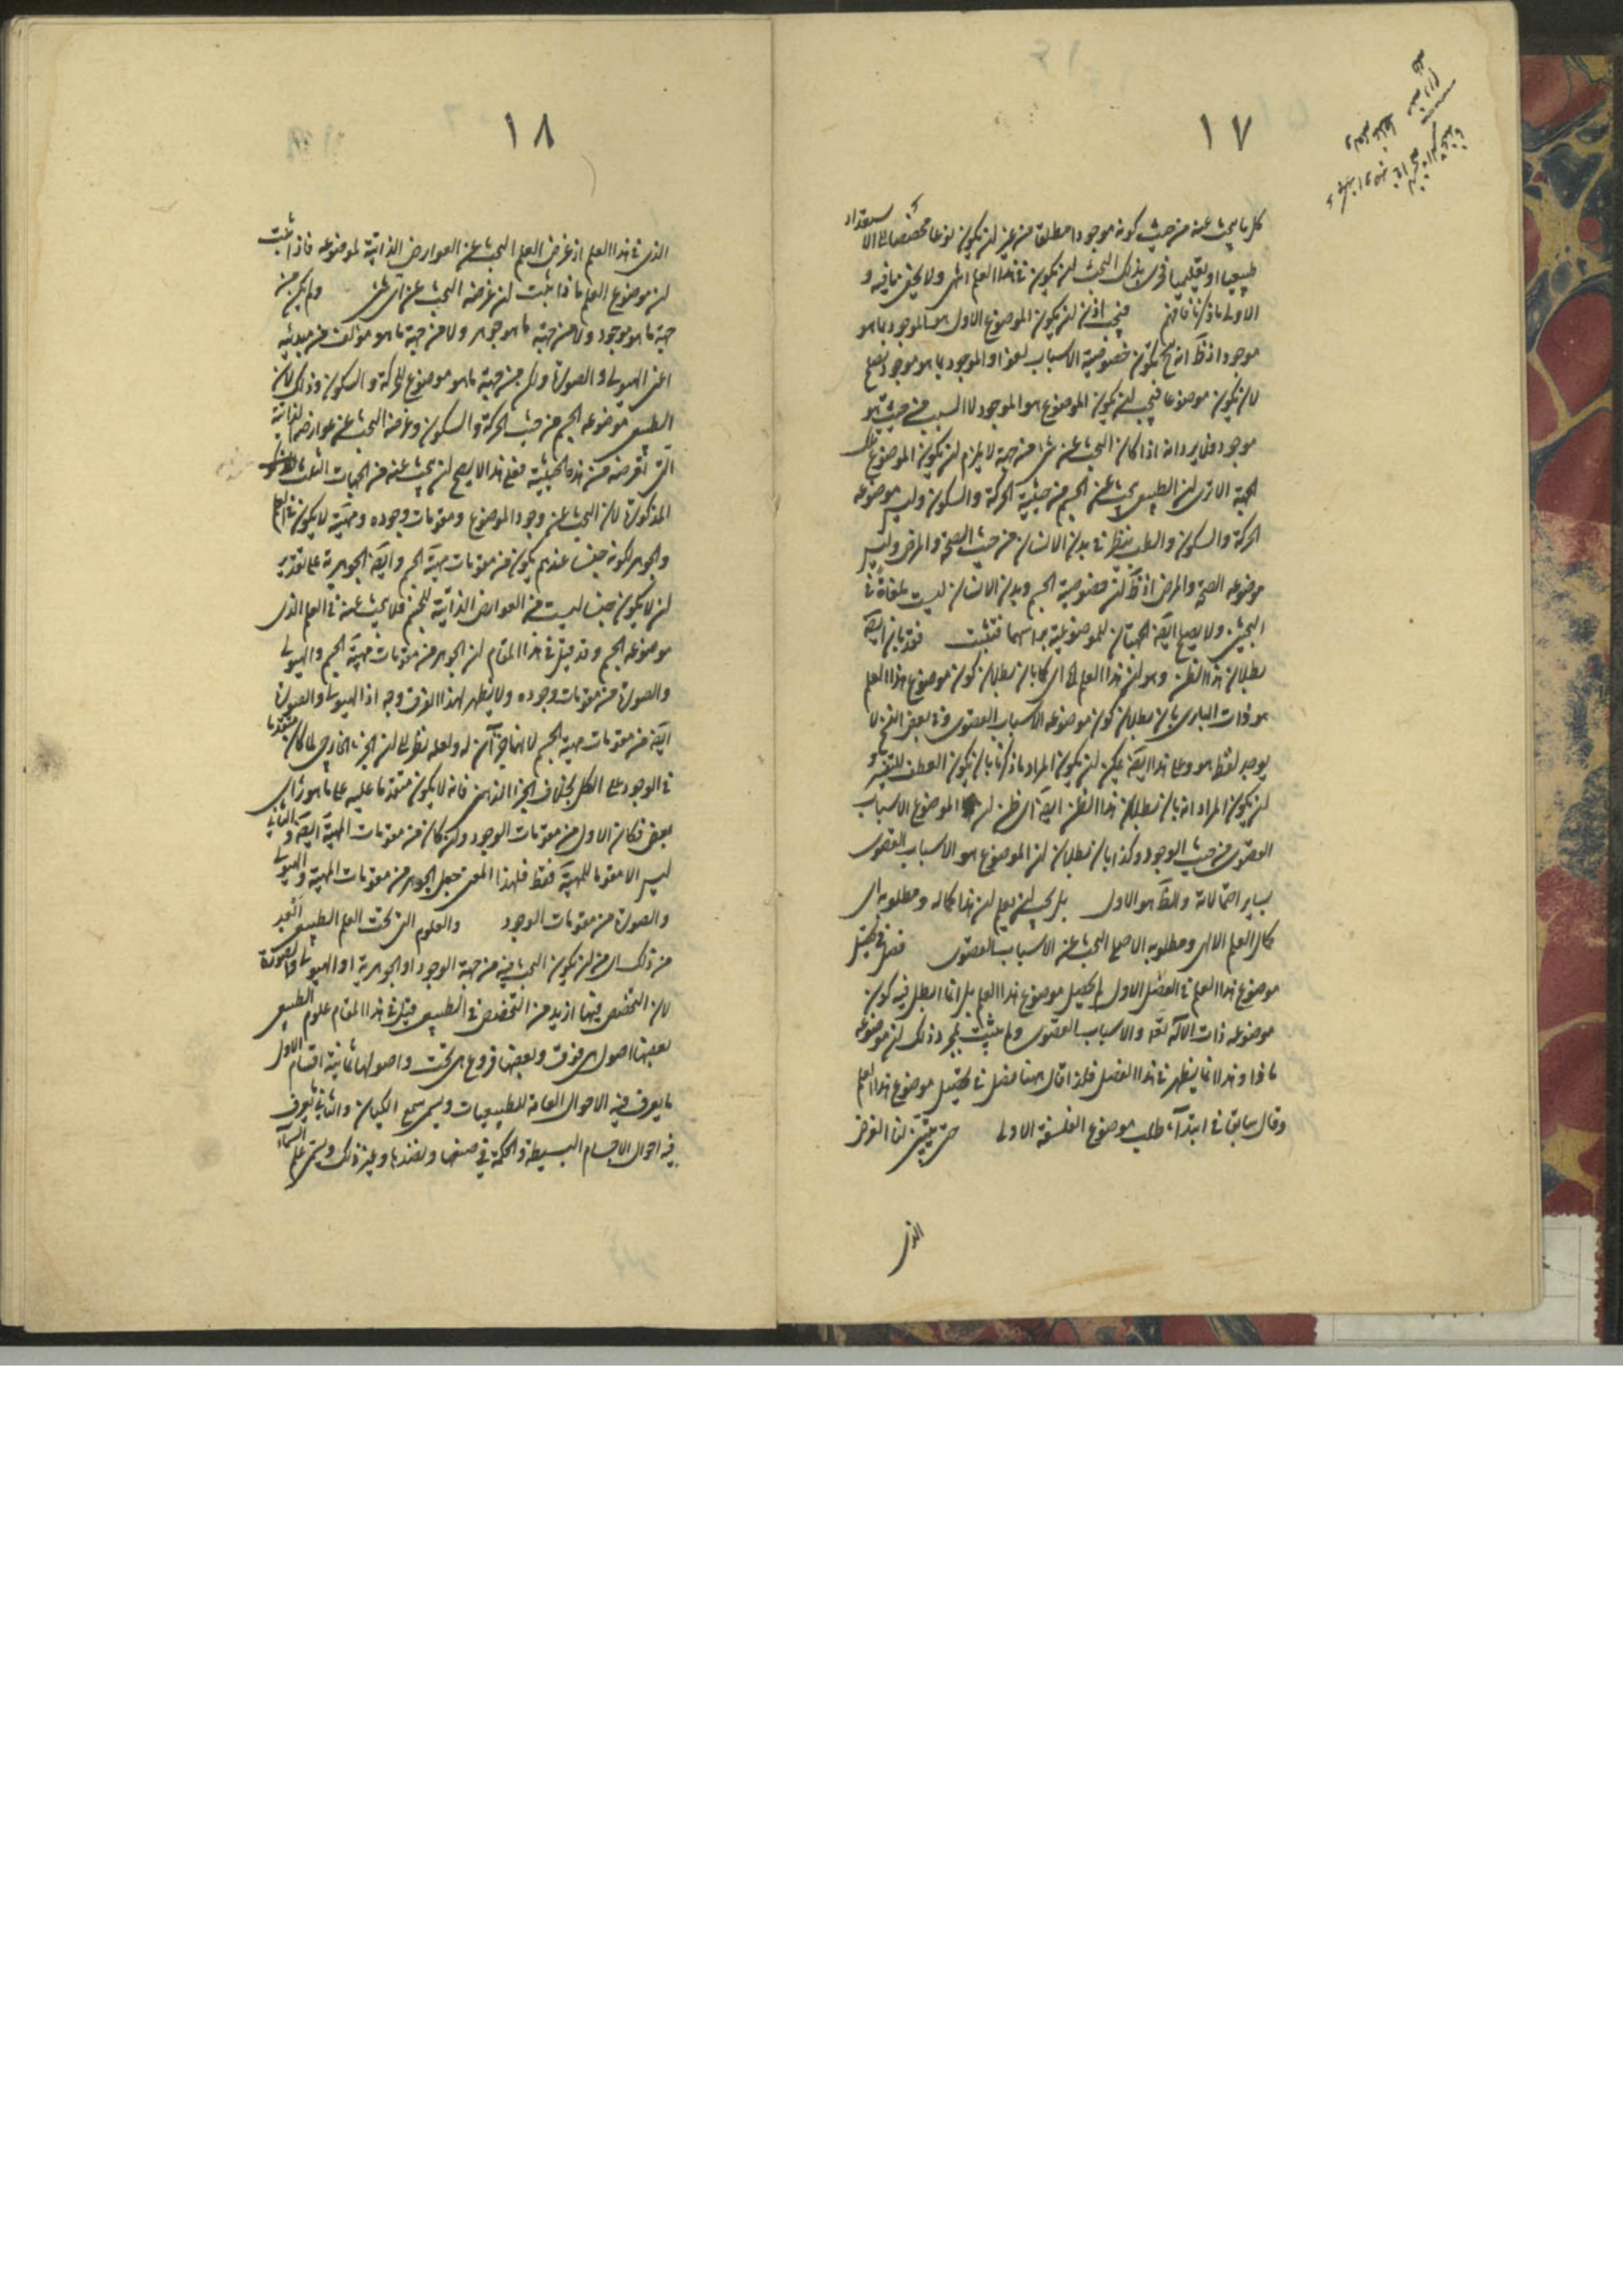 ١٧
كل ما يبحث عنه من حيث كونه موجودا مطلقا من غير ان يكون نوعا متخصصا الاستعداد
طبيعيا او تعليميا فحرى بذلك البحث ان يكون في هذا العلم انتهى ولا يخفى ما فيه و
الاولى ما ذكرنا فافهم فيجب اذن ان يكون الموضوع الاول هو الموجود بما هو
موجود اذ ظ انه ح تكون خصوصية الاسباب لغوا والموجود بما هو موجود يصلح
لان يكون موضوعا فيجب ان يكون الموضوع هو الموجود لا السبب من حيث هو
موجود وفيه يرد انه اذا كان البحث عن شئ من جهة لا يلزم ان يكون الموضوع تلك
الجهة الا ترى ان الطبيعى يبحث عن الجسم من حيثية الحركة والسكون وليس موضوعه
الحركة والسكون والطب ينظر في بدن الانسان من حيث الصحة والمرض وليس
موضوعه الصحة والمرض اذ ظ ان خصوصية الجسم وبدن الانسان ليست ملغاة في
البحثين ولا يصلح ايضا الجهتان للموضوعية براسهما فتثبت فقد بان ايضا
بطلان هذا الظن وهو ان هذا العلم الخ اى كما بان بطلان كون موضوع هذا العلم
هو ذات البارى بان بطلان كون موضوعه الاسباب القصوى وفي بعض النسخ لا
يوجد لفظ هو وعلى هذا ايضا يمكن ان يكون المراد ما ذكرنا بان يكون العطف للتفسير و
ان يكون المراد انه بان بطلان هذا الظن ايضا اى ظن ان الموضوع الاسباب
القصوى من حيث الوجود وكذا بان بطلان ان الموضوع هو الاسباب القصوى
بساير احتمالاته والظ هو الاول بل يجب ان يعلم ان هذا كماله ومطلوبه اى
كمال العلم الالهى ومطلوبه الاصلى البحث عن الاسباب القصوى فصل في تحصيل
موضوع هذا العلم في الفصل الاول لم يحصل موضوع هذا العلم بل انما ابطل فيه كون
موضوعه ذات الاله تعا والاسباب القصوى ولم يثبت بمجرد ذلك ان موضوعه
ماذا وهذا انما يظهر في هذا الفصل فلذا قال ههنا فصل في تحصيل موضوع هذا العلم
وقال سابقا في ابتداء طلب موضوع الفلسفة الاولى حتى يتبين لنا الغرض
الذى
١٨
الذى في هذا العلم اذ غرض العلم البحث عن العوارض الذاتية لموضوعه فاذا ثبت
ان موضوع العلم ماذا ثبت ان غرضه البحث عن اى شئ ولم يكن من
جهة ما هو موجود ولا من جهة ما هو جوهر ولا من جهة ما هو مؤلف من مبدئيه
اعنى الهيولى والصورة ولكن من جهة ما هو موضوع للحركة والسكون وذلك لان
الطبيعى موضوعه الجسم من حيث الحركة والسكون وغرضه البحث عن عوارضه الذاتية
التى تعرضه من هذه الحيثية فعلى هذا لا يصح ان يبحث عنه من الجهات الثلث
المذكورة لان البحث عن وجود الموضوع ومقومات وجوده ومهيته لا يكون في العلم
والجوهر لكونه جنسا عندهم يكون من مقومات مهية الجسم وايضا الجوهرية على تقدير
ان لا يكون جنسا ليست من العوارض الذاتية للجسم فلا يبحث عنه في العلم الذى
موضوعه الجسم وقد قيل في هذا المقام ان الجوهر من مقومات مهية الجسم والهيولى
والصورة من مقومات وجوده ولا يظهر لهذا الفرق وجه اذ الهيولى والصورة
ايضا من مقومات مهية الجسم لانهما جزآن له ولعله نظر الى ان الجزء الخارجى لما كان متقدما
في الوجود على الكل بخلاف الجزء الذهنى فانه لا يكون متقدما عليه على ما هو راى
بعض فكان الاول من مقومات الوجود وان كان من مقومات المهية ايضا والثانى
ليس الا مقوما للمهية فقط فلهذا المعنى جعل الجوهر من مقومات المهية والهيولى
والصورة من مقومات الوجود والعلوم التى تحت العلم الطبيعى ابعد
من ذلك اى من ان يكون البحث فيه من جهة الوجود او الجوهرية او الهيولى والصورة
لان التخصص فيها ازيد من التخصص في الطبيعى قيل في هذا المقام علوم الطبيعى
بعضها اصول هى فوق وبعضها فروع هى تحت واصولها ثمانية اقسام الاول
ما يعرف فيه الاحوال العامة للطبيعيات ويسمى سمع الكيان والثانى يعرف
فيه احوال الاجسام البسيطة والحكمة في صنعها ونضدها وغير ذلك ويسمى علم السماء